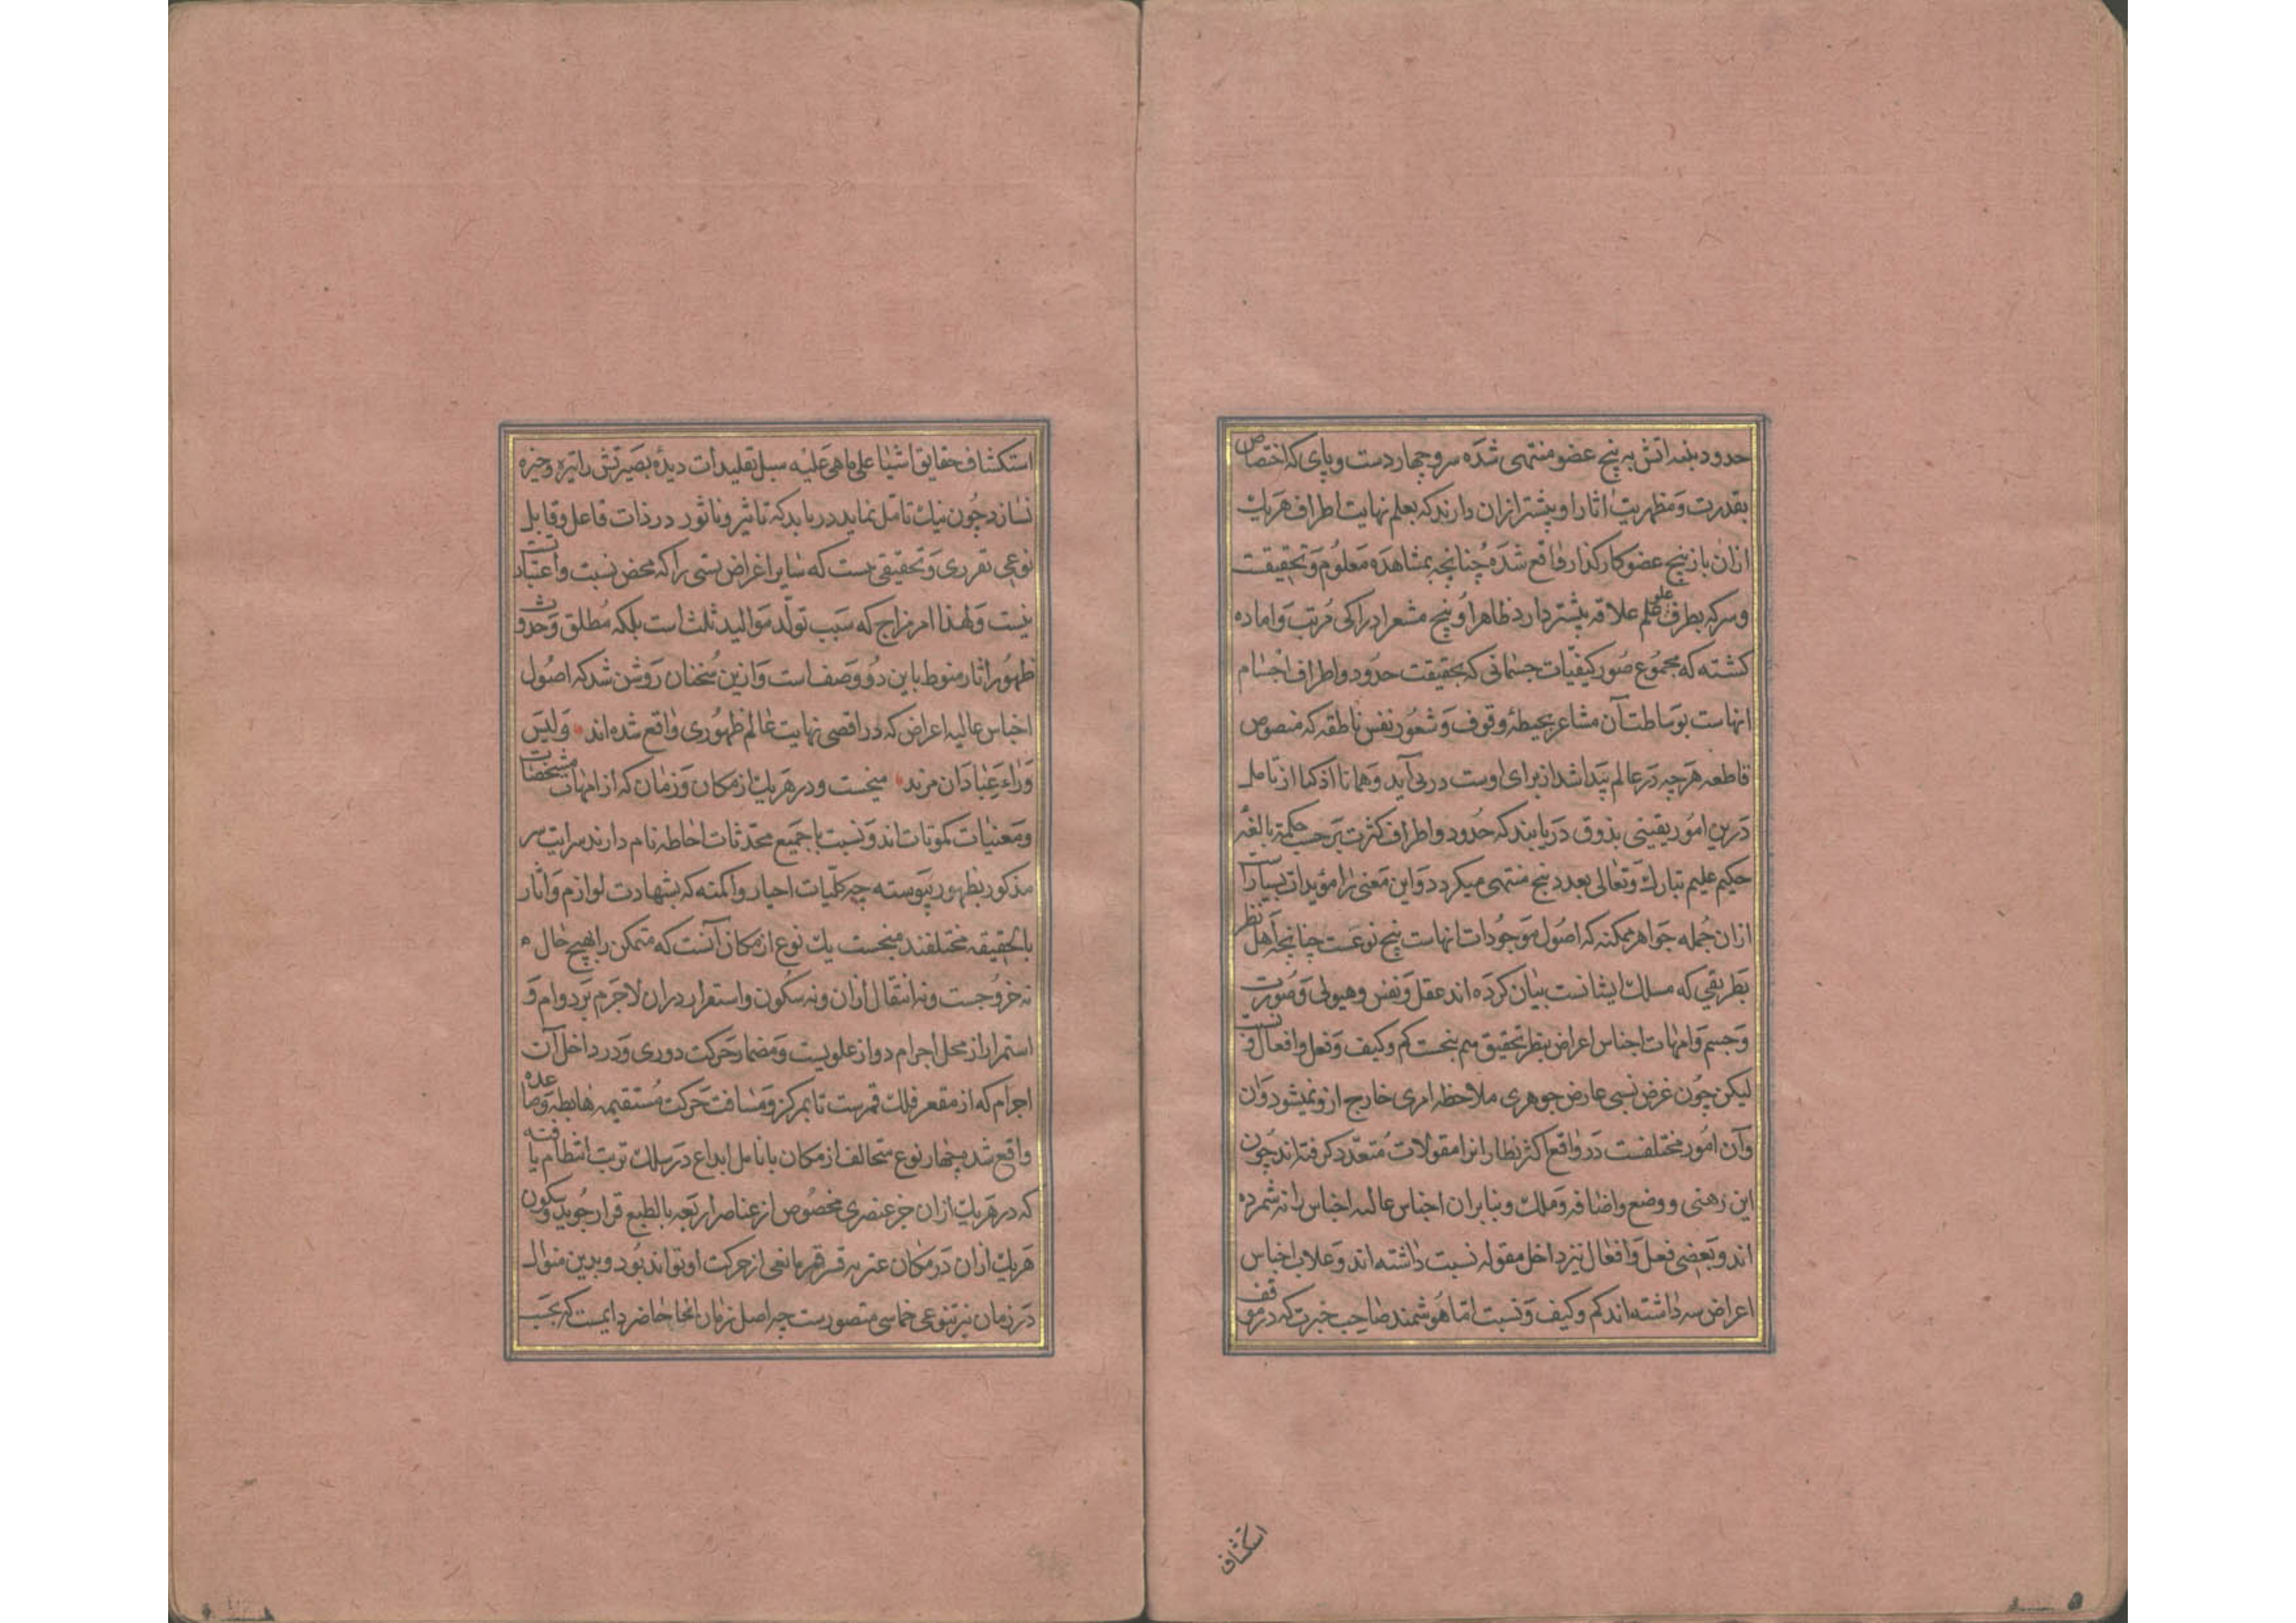 حدود بنه اتش به پنج عضو منتهی شده سر و چهار دست و پای که اختصاص
بقدرت و مظهریت اثار او بیشتر ازان دارند که بعلم نهایت اطراف هریك
ازان باز پنج عضو کارکذار واقع شده چنانچه بمشاهده معلوم و تحقیقت
و سر که بطرف علم علاقه بیشتر دارد ظاهرا و پنج مشعر ادراکی مرتب و اماده
کشته که مجموع صور کیفیات جسمانی که بحقیقت حدود و اطراف اجسام
انهاست بوساطت آن مشاعر بحیطهٔ وقوف و شعور نفس ناطقه که منصوص
قاطعه هرچه در عالم پیدا شد از برای اوست در می آید و همانا اذکیا از تامل
درین امور یقینی بذوق دریابند که حدود و اطراف کثرت بر حسب حکمة بالغهٔ
حکیم علیم تبارك و تعالی بعدد پنج منتهی میکردد و این معنی را مؤیدات بسیار
ازان جمله جواهر ممکنه که اصول موجودات انهاست پنج نوعست چنانچه اهل نظر
بطریقی که مسلك ایشانست بیان کرده اند عقل و نفس و هیولی و صورت
و جسم و امهات اجناس اعراض بنظر تحقیق هم پنجست کم و کیف و فعل و افعال و نسبت
لیکن چون عرض نسبی عارض جوهری ملاحظه امری خارج ازو نمیشود وان
وآن امور مختلفست در واقع اکثر نظار انرا مقولات متعدد کرفته اند چون
این و متی و وضع و اضافه و ملك و بنابران اجناس عالیه اجناس را نه شمرده
اند و بعضی فعل و افعال نیز داخل مقوله نسبت داشته اند و اجناس
اعراض سه داشته اند کم و کیف و نسبت اما هوشمند صاحب خبرت که در موقف
استکشاف
استکشاف حقایق اشیا علی ما هی علیه سبل تقلیدات دیدهٔ بصیرتش را تیره و خیره
نسازد چون نیك تامل نماید دریابد که تاثیر و تاثر در ذات فاعل و قابل
نوعی تقرری و تحقیقی هست که سایر اعراض نسبی را که محض نسبت و اعتبارست
نیست و لهذا امر مزاج که سبب تولد موالید ثلث است بلکه مطلق و حدوث
ظهور اثار منوط باین دو وصف است و ازین سخنان روشن شد که اصول
اجناس عالیه اعراض که در اقصی نهایت عالم ظهوری واقع شده اند و لیس
وراء عبادان مزید پنجست و در هریك از مکان و زمان که از امهات مشخصات
و معنیات مکونات اند و نسبت با جمیع محدثات احاطه تام دارند سرایت سر
مذکور بظهور پیوسته چه کلیات احیاز و امکنه که بشهادت لوازم و اثار
بالحقیقه مختلفند پنجست یك نوع از مکان آنست که متمکن را بهیچ حال
نه خروجست و نه انتقال ازان و نه سکون و استقرار دران لاجرم بر دوام و
استمرار از محل اجرام دوار علویست و مضمار حرکت دوری و در داخل آن
اجرام که از مقعر فلك قمرست تا بمرکز و مسافت حرکت مستقیمه هابطه و صاعده
واقع شد بچهار نوع متخالف از مکان بانامل ابداع در سلك ترتیب انتظام یافته
که در هریك ازان جز عنصری مخصوص از عناصر اربعه بالطبع قرار جوید و سکون
هریك ازان در مکان غیر به قسر قهر مانعی از حرکت او تواند بود و بدین منوال
در زمان نیز تنوعی خماسی متصورست چه اصل زمان انحا حاضر دایمست که بحسب